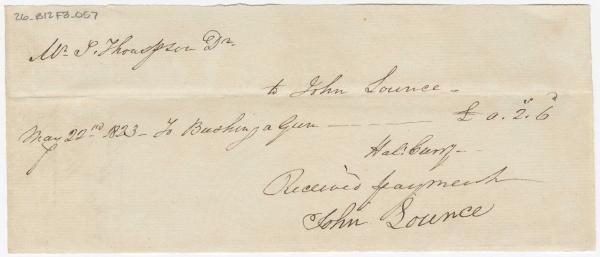 26_B12F3_057
Mr. P. Thompson Dr.
to John Lounce -
May 22nd 1823 - To Bushing a Gun - £ 0. 2s. 6d
Hal: Curry -
Received payment
John Lounce